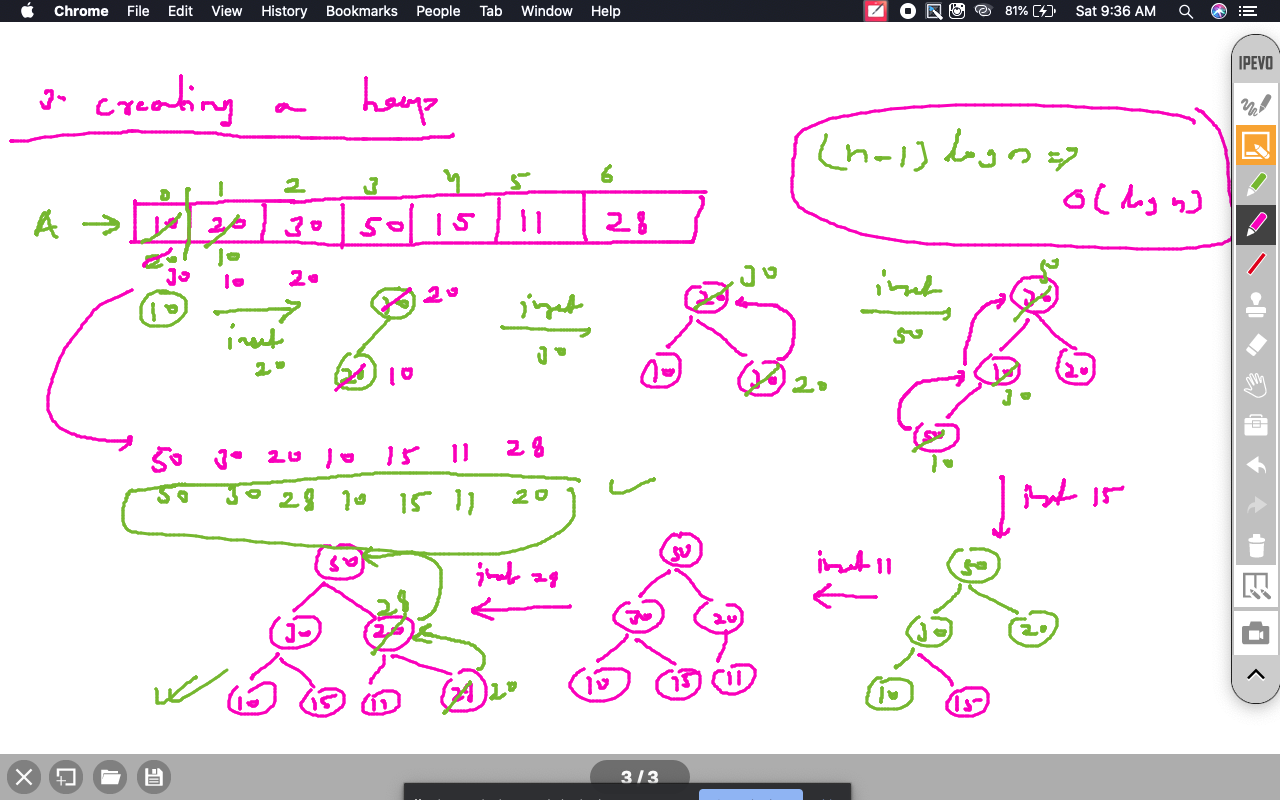 Chrome File Edit View History Bookmarks People Tab Window Help 81% Sat 9:36 AM
IPEVO
3- creating a heap
(n-1) log n =>
O(log n)
0 1 2 3 4 5 6
A → 10 20 30 50 15 11 28
20 10
30 10 20
10
insert
20
10 20
20 10
insert
30
20 30
10 30 20
insert
50
30 50
10 30 20
50 10
50 30 20 10 15 11 28
50 30 28 10 15 11 20
insert 15
50
30 20
10 15
insert 11
50
30 20
10 15 11
insert 28
50
30 20 28
10 15 11 28 20
3 / 3